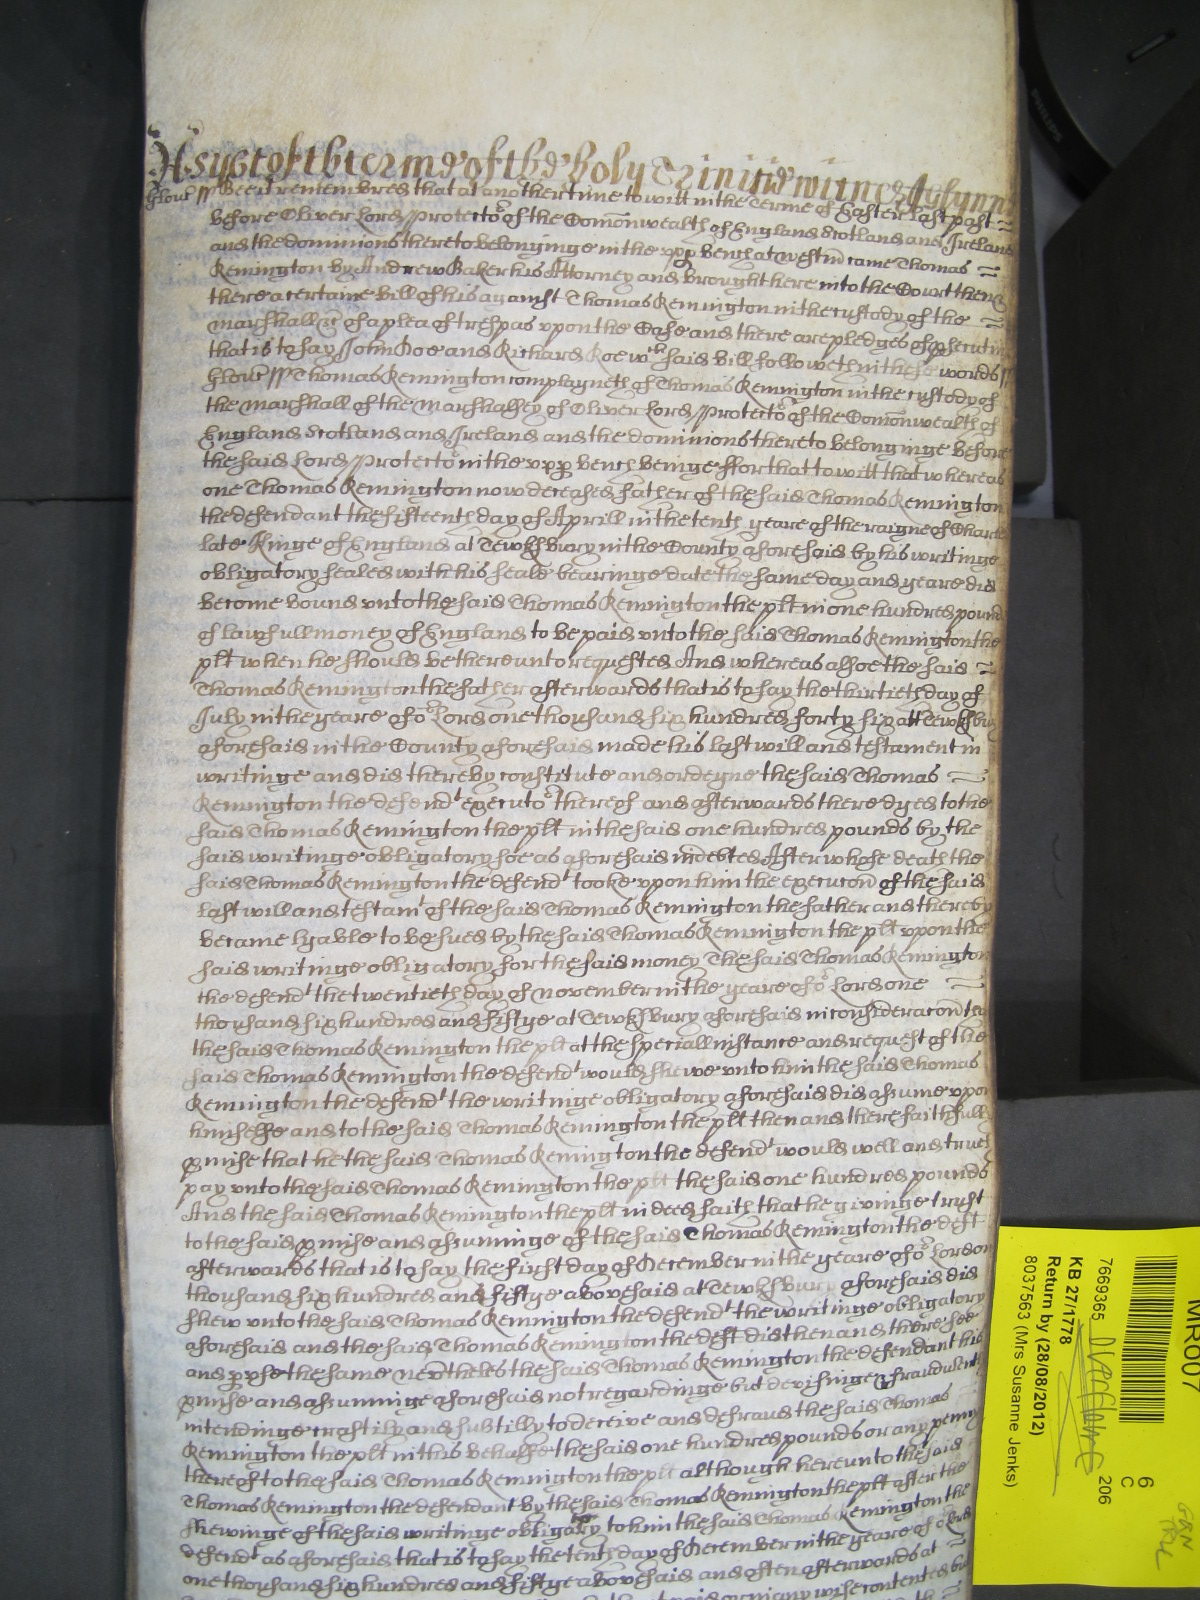 As yet of the terme of the holy Trinitie witnes Aylynn
Glouc ss Bee it remembred that at another time to witt in the Terme of Easter last past
before Oliver Lord Protector of the Comonwealth of England Scotland and Ireland
and the dominions thereto belonginge in the upp bench at westm came Thomas
Remington by Andrew Baker his Attorney and brought here into the Court then
there a certaine Bill of his against Thomas Remington in the custody of the
marshall &c of a plea of trespas upon the Case and there are pledges of psecution
that is to say John Doe and Richard Roe wch said bill followeth in these words ss
Glouc ss Thomas Remington complayneth of Thomas Remington in the custody of
the marshall of the marshalsey of Oliver Lord Protector of the Comonwealth of
England Scotland and Ireland and the dominions thereto belonginge before
the said Lord Protector in the upp bench beinge ffor that to witt that whereas
one Thomas Remington now deceased father of the said Thomas Remington
the defendant the fifteenth day of Aprill in the tenth yeare of the raigne of Charles
late Kinge of England at Tewksbury in the County aforesaid by his writinge
obligatory sealed with his seale bearinge date the same day and yeare did
become bound unto the said Thomas Remington the plt in one hundred pounds
of lawfull money of England to be paid unto the said Thomas Remington the
plt when he should be thereunto requested And whereas alsoe the said
Thomas Remington the father afterwards that is to say the thirtieth day of
July in the yeare of or Lord one thousand six hundred forty six att Tewksbury
aforesaid in the County aforesaid made his last will and testament in
writinge and did thereby constitute and ordeyne the said Thomas
Remington the defendt executor thereof and afterwards there dyed to the
said Thomas Remington the plt in the said one hundred pounds by the
said writinge obligatory soe as aforesaid indebted After whose death the
said Thomas Remington the defendt tooke upon him the execucon of the said
last will and testamt of the said Thomas Remington the father and thereby
became lyable to be sued by the said Thomas Remington the plt upon the
said writinge obligatory for the said money The said Thomas Remington
the defendt the twentieth day of november in the yeare of or Lord one
thousand six hundred and fiftye at Tewksbury aforesaid in consideracon that
the said Thomas Remington the plt at the speciall instance and request of the
said Thomas Remington the defendt would shewe unto him the said Thomas
Remington the defendt the writinge obligatory aforesaid did assume upon
himselfe and to the said Thomas Remington the plt then and there faithfully
pmise that he the said Thomas Remington the defendt would well and truely
pay unto the said Thomas Remington the plt the said one hundred pounds
And the said Thomas Remington the plt in deed saith that he givinge trust
to the said pmise and assuminge of the said Thomas Remington the deft
afterwards that is to say the first day of December in the yeare of or Lord one
thousand six hundred and fiftye abovesaid at Tewksbury aforesaid did
shew unto the said Thomas Remington the defendt the writinge obligatory
aforesaid and the said Thomas Remington the deft did then and there see
and pvse the same nevtheles the said Thomas Remington the defendant his
pmise and assuminge aforesaid not regardinge but devisinge & fraudulently
intendinge craftily and subtilly to deceive and defraud the said Thomas
Remington the plt in this behalfe the said one hundred pounds or any penny
thereof to the said Thomas Remington the plt although hereunto the said
Thomas Remington the defendant by the said Thomas Remington the plt after the
shewinge of the said writinge obligatory to him the said Thomas Remington the
defendt as aforesaid that is to say the tenth day of December in the yeare of or Lord
one thousand six hundred and fiftye abovesaid and often afterwards at
any wise contented but
PHILIPS
MR007
6
C
206
7669365
KB 27/1778
Return by (28/08/2012)
8037563 (Mrs Susanne Jenks)